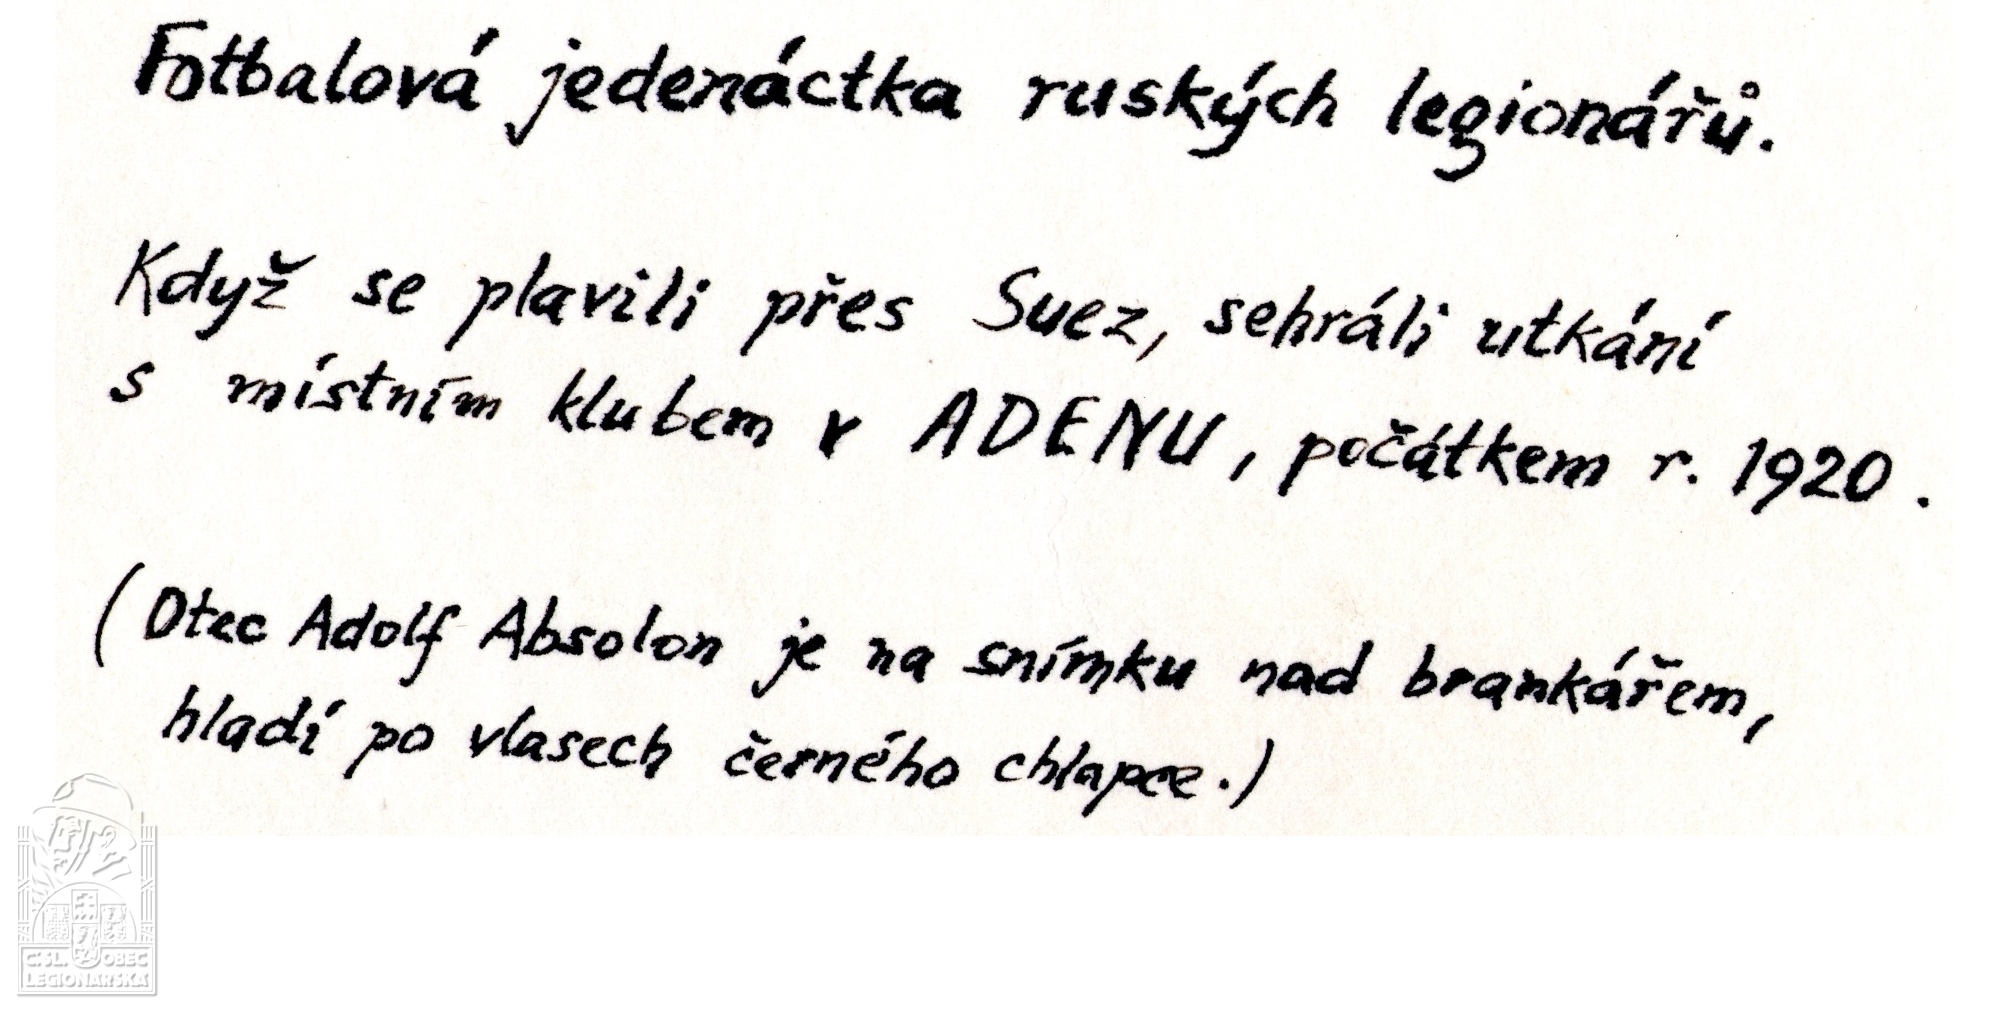 Fotbalová jedenáctka ruských legionářů.
Když se plavili přes Suez, sehráli utkání
s místním klubem v ADENU, počátkem r. 1920.
(Otec Adolf Absolon je na snímku nad brankářem,
hladí po vlasech černého chlapce.)
Č.SL. OBEC
LEGIONÁŘSKÁ